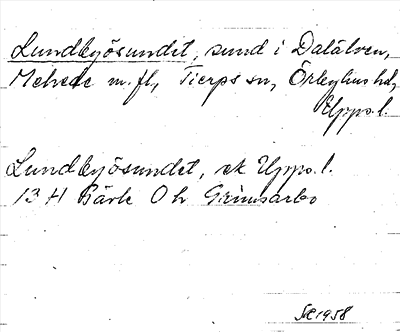 Lundbyösundet, sund i Dalälven,
Mehede m.fl., Tierps sn, Örbyhus hd,
Upps.l.
Lundbyösundet, ek Upps.l.
13 H Bärle O h Grimsarbo
1958